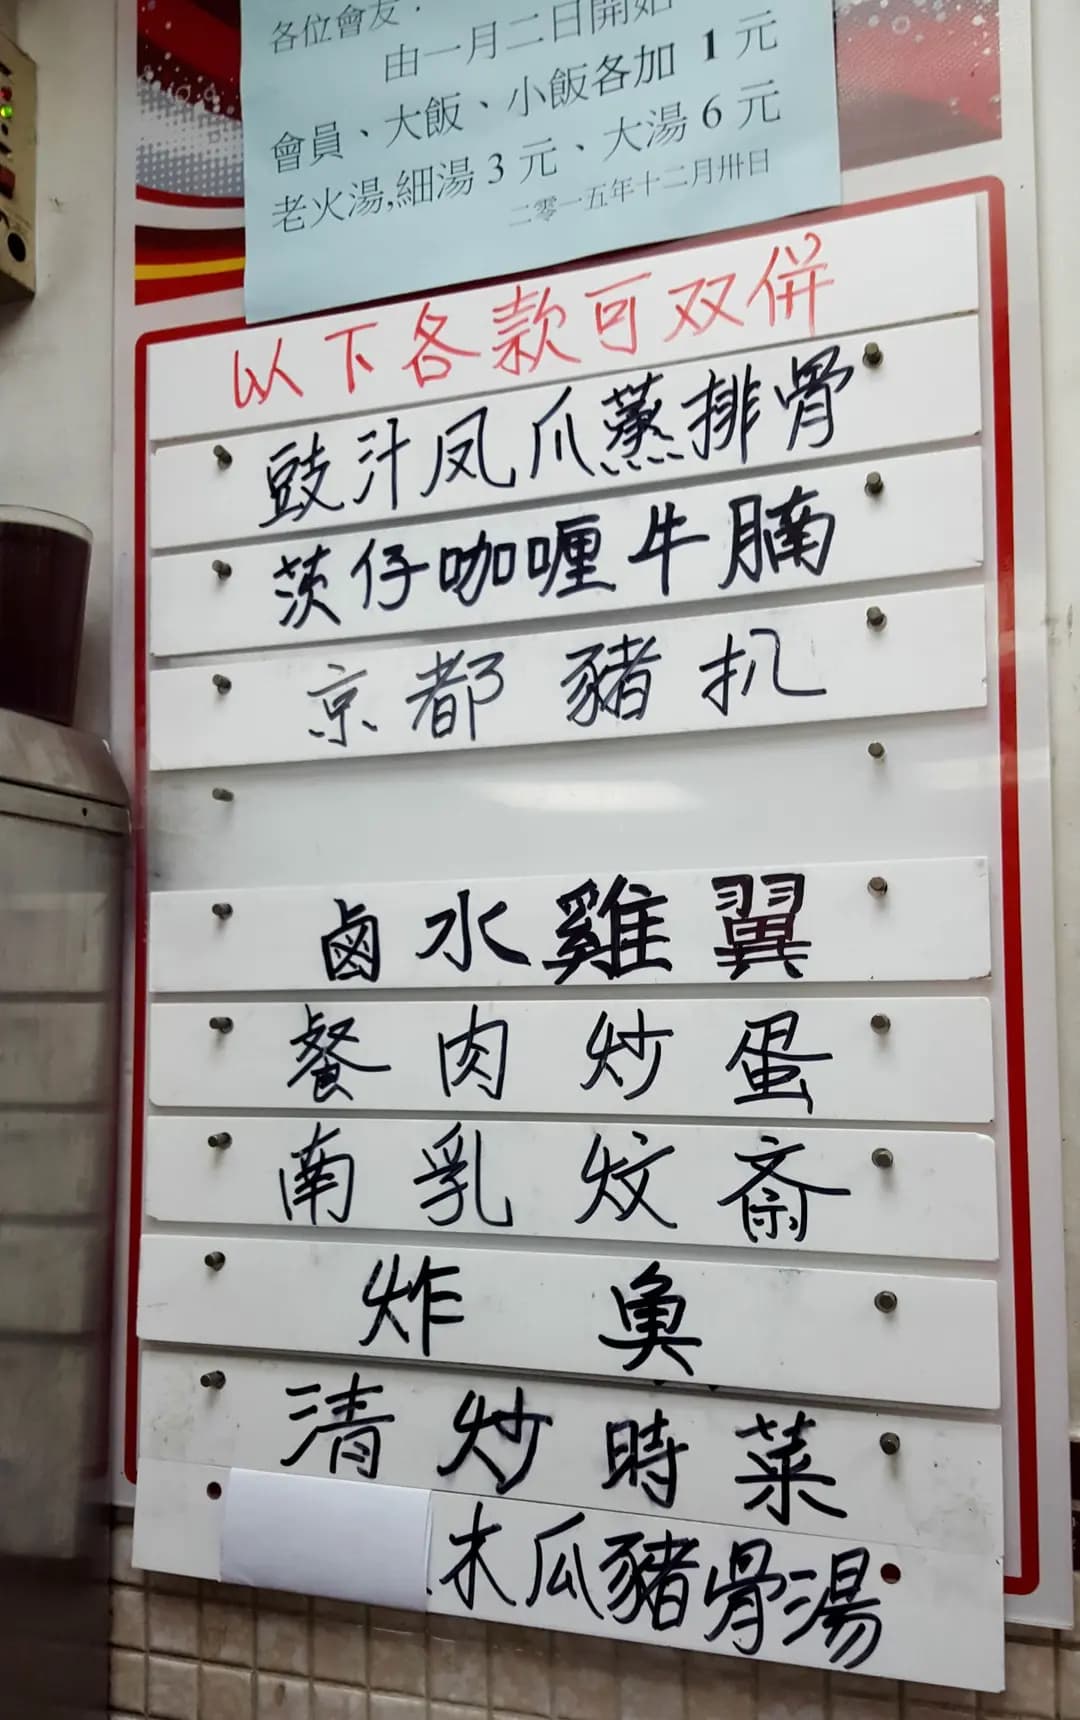 各位會友：
由一月二日開始
會員、大飯、小飯各加 1 元
老火湯,細湯 3 元、大湯 6 元
二零一五年十二月卅日
以下各款可双併
豉汁凤爪蒸排骨
茨仔咖喱牛腩
京都豬扒
鹵水雞翼
餐肉炒蛋
南乳炆斋
炸魚
清炒時菜
木瓜豬骨湯